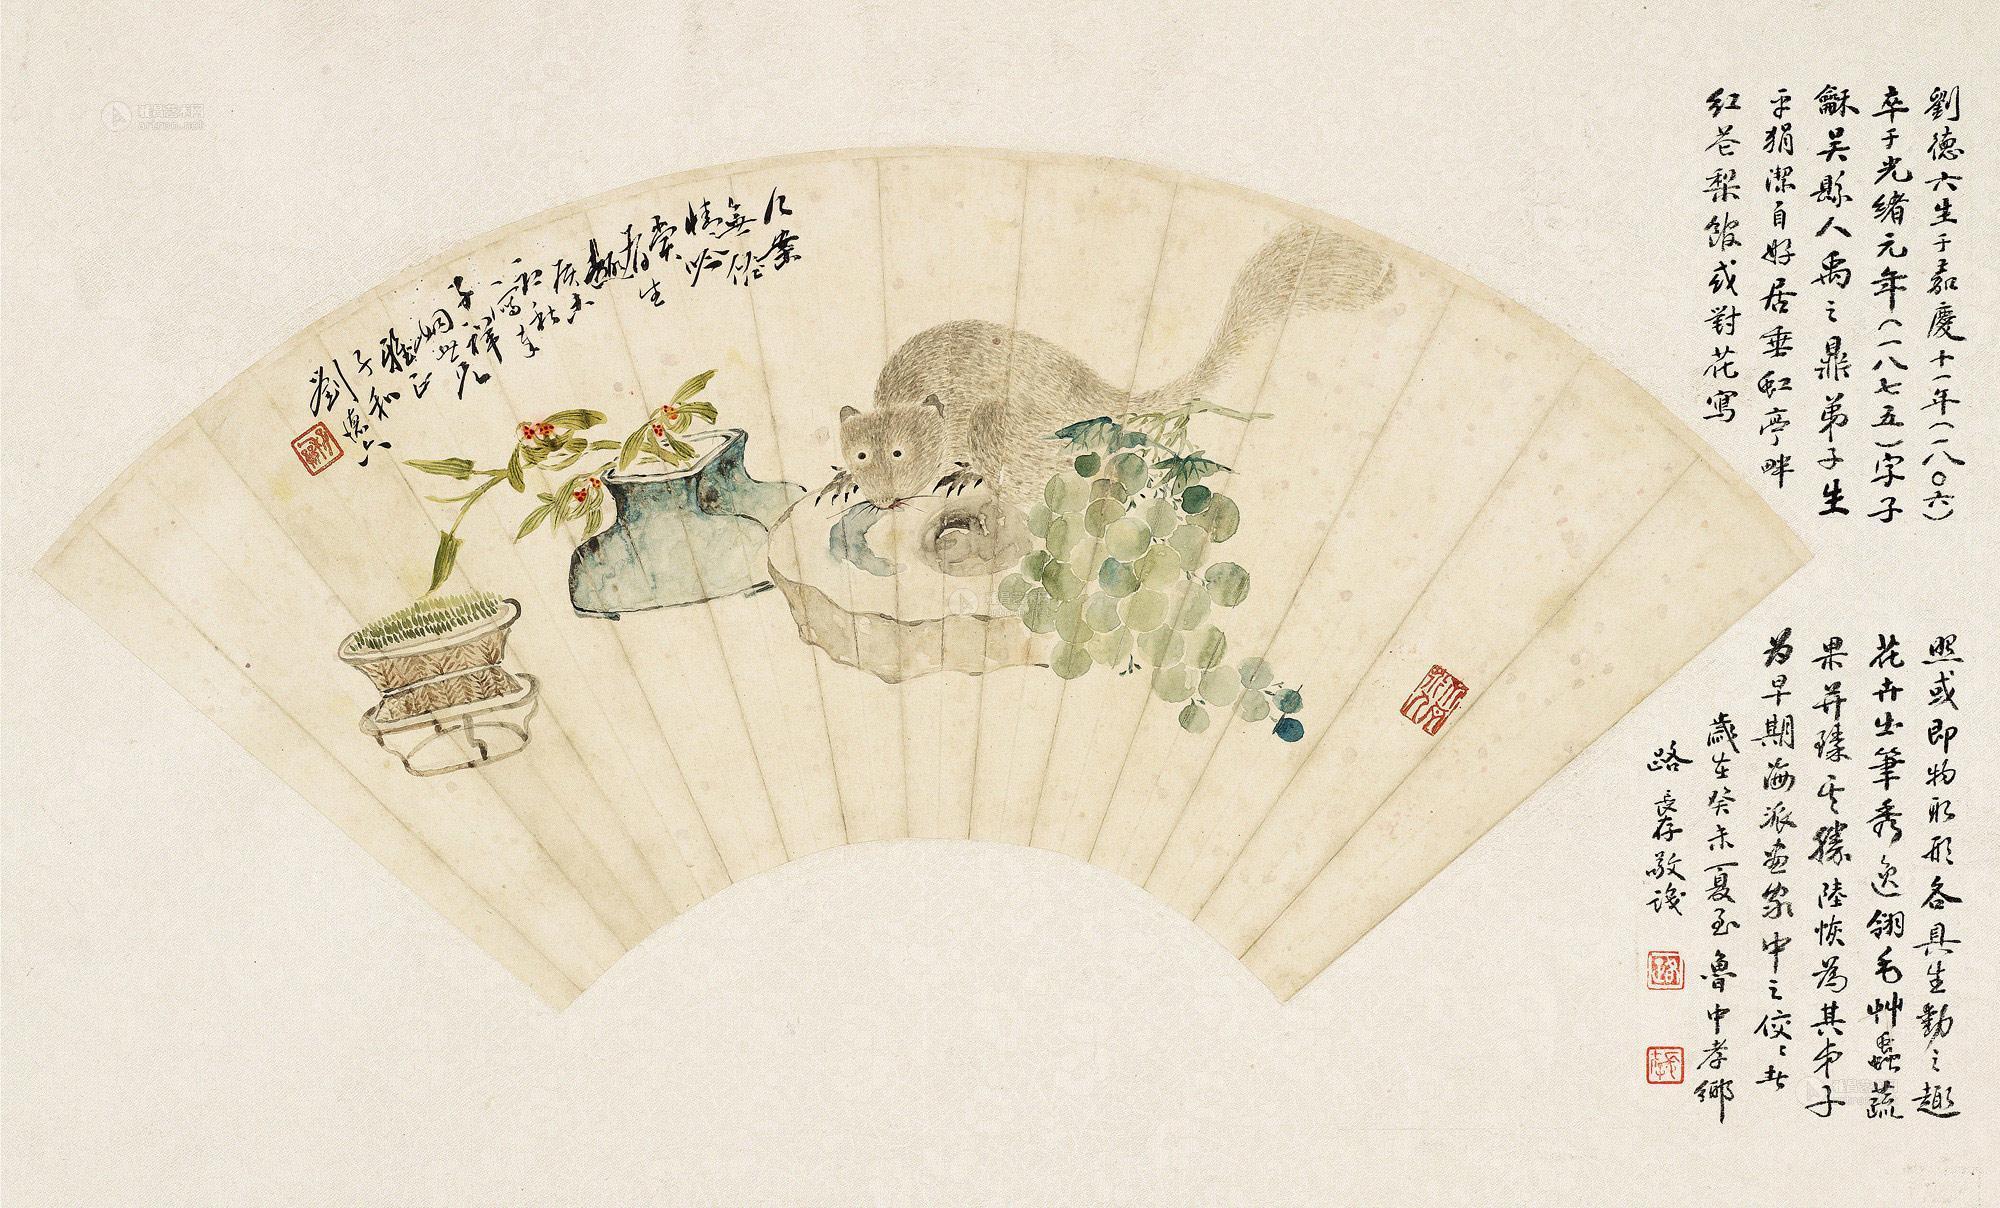 劉德六生于嘉慶十一年(一八〇六)
卒于光緒元年(一八七五)字子
龢吳縣人禹之鼎弟子生
平狷潔自好居垂虹亭畔
紅芒梨館或對花寫
照或即物取形各具生動之趣
花卉出筆秀逸翎毛艸蟲蔬
果并臻其勝陸恢為其弟子
为早期海派畫家中之佼佼者
歲在癸未夏至魯中孝鄉
路長存敬識
几案
無俗
情吟
賞
有生
趣
雅正
子和
劉德六
雅昌艺术网
artron.net